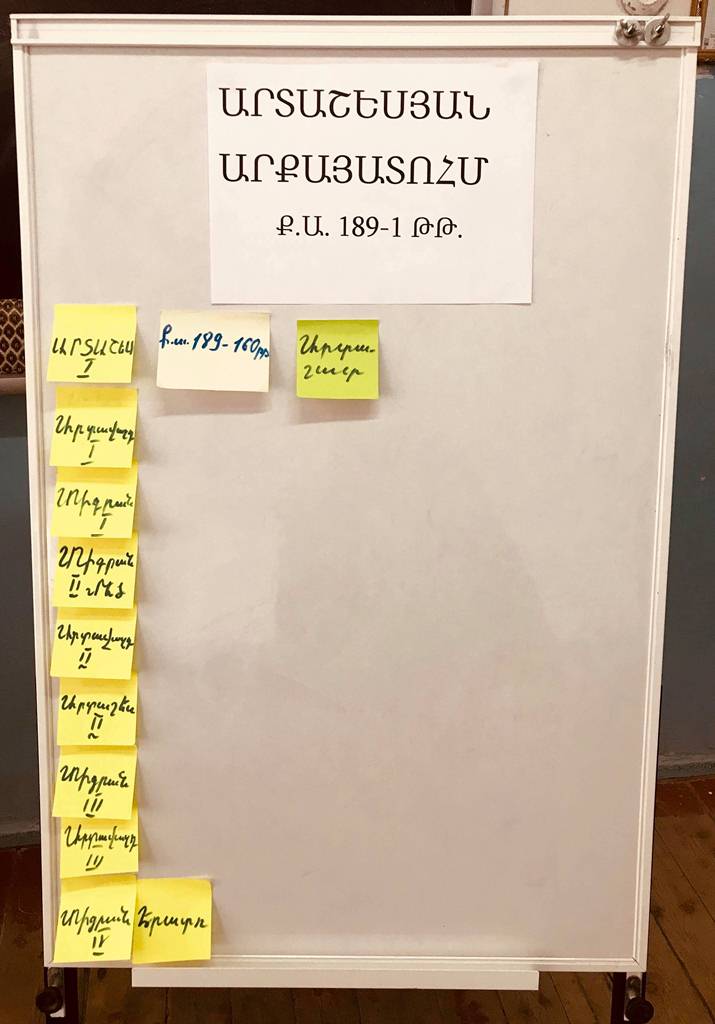 ԱՐՏԱՇԵՍՅԱՆ
ԱՐՔԱՅԱՏՈՀՄ
Ք.Ա. 189-1 ԹԹ.
ԱՐՏԱՇԵՍ
I
Ք.ա. 189-160թթ
Արտա-
շատ
Արտավազդ
I
Տիգրան
I
Տիգրան
II Մեծ
Արտավազդ
II
Արտաշես
II
Տիգրան
III
Արտավազդ
III
Տիգրան
IV
Էրատո